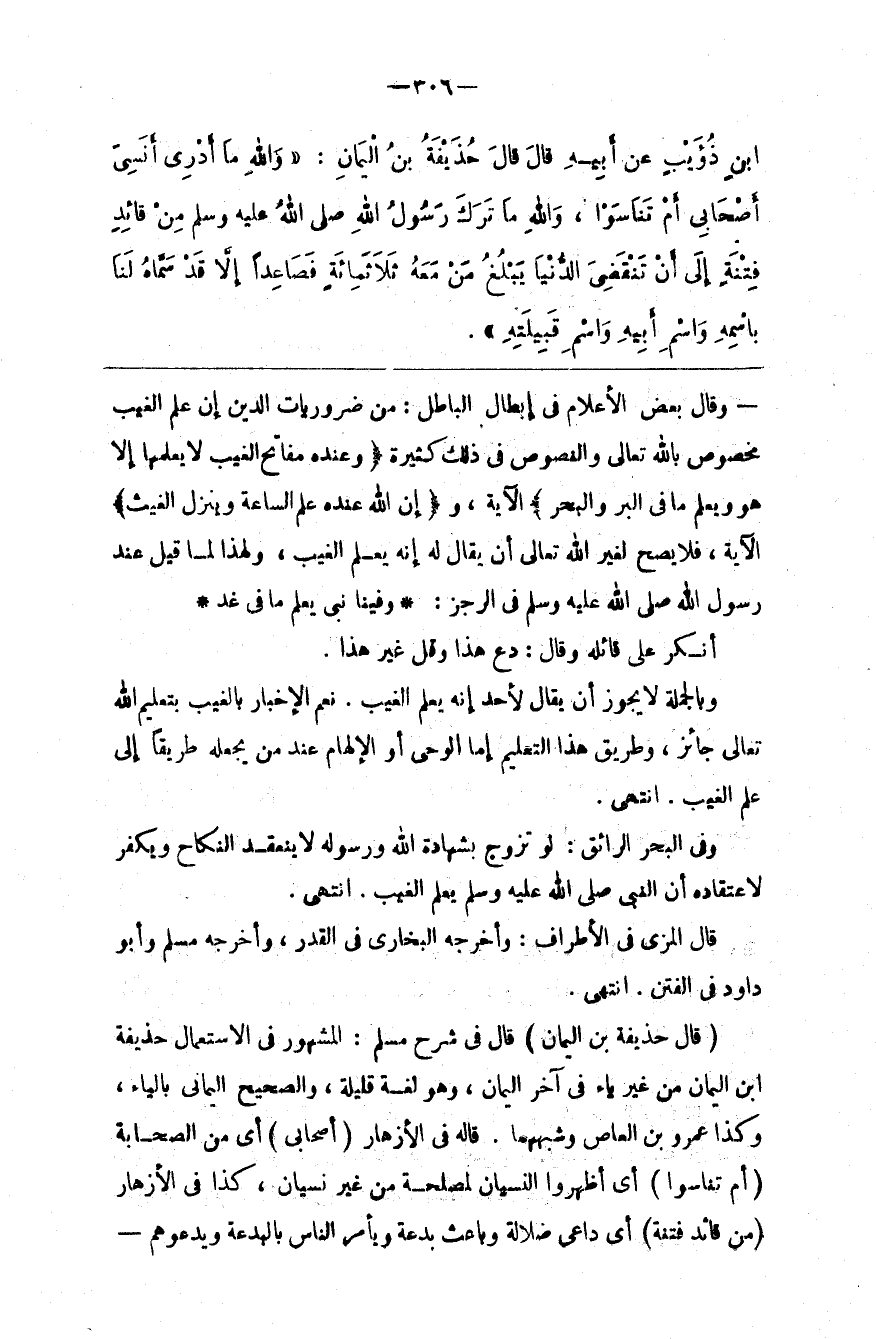 —٣٠٦—
ابنِ ذُؤَيْبٍ عن أَبِيـهِ قالَ قالَ حُذَيْفَةُ بنُ الْيَمَانِ : « وَاللهِ مَا أَدْرِى أَنَسِىَ
أَصْحَابِى أَمْ تَنَاسَوْا ، وَاللهِ مَا تَرَكَ رَسُولُ اللهِ صلى اللهُ عليه وسلم مِنْ قائِدِ
فِتْنَةٍ إِلَى أَنْ تَنْقَضِىَ الدُّنْيَا يَبْلُغُ مَنْ مَعَهُ ثَلَاثَمِائَةٍ فَصَاعِداً إِلَّا قَدْ سَمَّاهُ لَنَا
باسْمِهِ وَاسْمِ أَبِيهِ وَاسْمِ قَبِيلَتِهِ » .
— وقال بعض الأعلام فى إبطال الباطل : من ضروريات الدين إن علم الغيب
مخصوص بالله تعالى والنصوص فى ذلك كثيرة ﴿ وعنده مفاتح الغيب لايعلمها إلا
هو ويعلم مافى البر والبحر ﴾ الآية ، و ﴿ إن الله عنده علم الساعة وينزل الغيث﴾
الآية ، فلايصح لغير الله تعالى أن يقال له إنه يعـلم الغيب ، ولهذا لمـا قيل عند
رسول الله صلى الله عليه وسلم فى الرجز : * وفينا نبى يعلم مافى غد *
أنـكر على قائله وقال : دع هذا وقل غير هذا .
وبالجملة لايجوز أن يقال لأحد إنه يعلم الغيب . نعم الإخبار بالغيب بتعليم الله
تعالى جائز ، وطريق هذا التعليم إما الوحى أو الإلهام عند من يجعله طريقاً إلى
علم الغيب . انتهى .
وفى البحر الرائق : لو تزوج بشهادة الله ورسوله لاينعقـد النكاح ويكفر
لاعتقاده أن النبى صلى الله عليه وسلم يعلم الغيب . انتهى .
قال المزى فى الأطراف : وأخرجه البخارى فى القدر ، وأخرجه مسلم وأبو
داود فى الفتن . انتهى .
( قال حذيفة بن اليمان ) قال فى شرح مسلم : المشهور فى الاستعمال حذيفة
ابن اليمان من غير ياء فى آخر اليمان ، وهو لغـة قليلة ، والصحيح اليمانى بالياء ،
وكذا عمرو بن العاص وشبههما . قاله فى الأزهار ( أصحابى ) أى من الصحـابة
( أم تناسوا ) أى أظهروا النسيان لمصلحـة من غير نسيان ، كذا فى الأزهار
(من قائد فتنة) أى داعى ضلالة وباعث بدعة ويأمر الناس بالبدعة ويدعوهم —